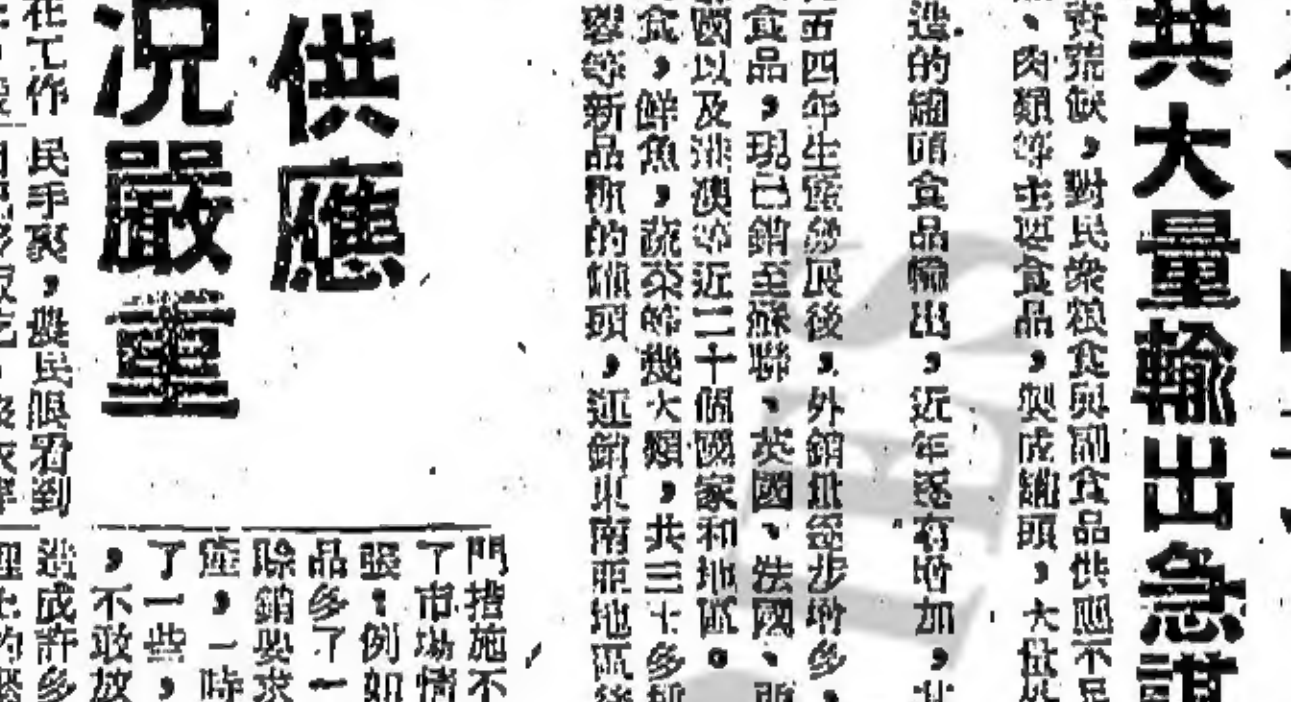 共大量輸出急謀
資荒缺，對民衆粮食與副食品供應不足
、肉類等主要食品，製成罐頭，大量
造的罐頭食品輸出，近年逐有增加，
五四年生產發展後，外銷批逐步增多，
食品，現已銷至蘇聯、英國、法國、
國以及港澳等近二十個國家和地區。
食，鮮魚，蔬菜等幾大類，共三十多
等新品種的罐頭，運銷東南亞地區後
供應
況嚴重
門措施不
了市場情
張，例如
品多了一
除銷要求
產，一時
了一些，
，不敢放
造成許多
工作
民手裏，農民眼看到